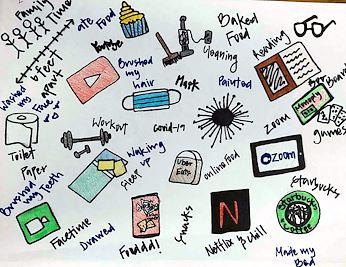 Family Time
ate Food
Baked
Food
Reading
Cleaning
6 feet
apart
Brushed
my
hair
Mask
Painted
Board
games
Monopoly
Washed
my
Toilet
Paper
Workout
Covid-19
Zoom
zoom
Waking
up
sleep
Uber
Eats
online food
Brushed
my Teeth
Facetime
Drawed
Snacks
N
Netflix & Chill
Starbucks
Starbucks
Coffee
Made my
Bed